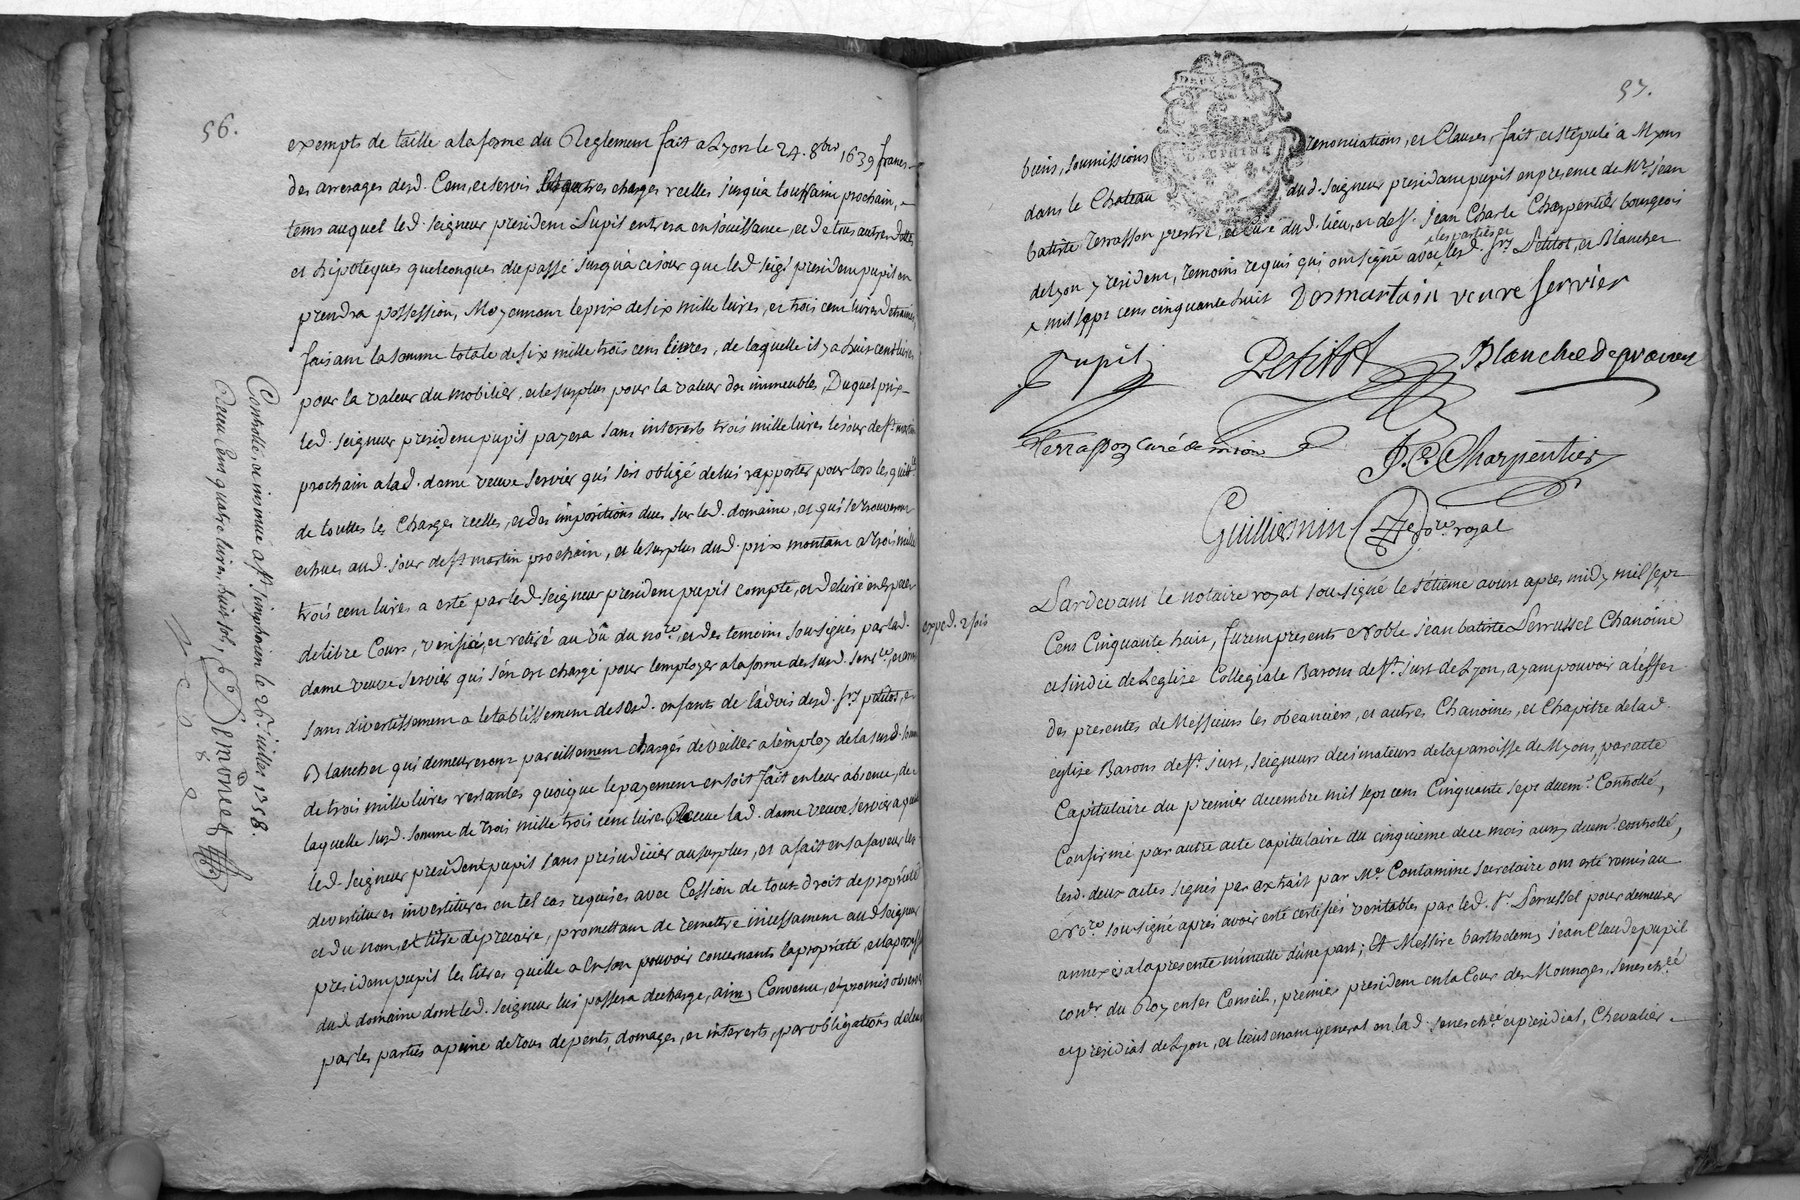 56.
exempts de taille a la forme du Reglement fait a Lyon le 24. 8bre 1639 francs
des arrerages desd. Cens, et servis et autres charges reelles jusqua toussaint prochain,
tems auquel led. seigneur president Pupil entrera en jouissance, et de tous autres dettes
et hipoteques quelconques du passé jusqua ce jour que led. seigr president pupil en
prendra possession, Moyennant le prix de six mille livres, et trois cent livres d'etraines,
faisant la somme totale de six mille trois cens livres, de laquelle il y a huit cent livres
pour la valeur du mobilier, et le surplus pour la valeur des immeubles, Duquel prix
led. seigneur president pupil payera sans interets trois mille livres le jour de st martin
prochain a lad. dame veuve servier qui sera obligé de lui rapporter pour lors les quittces
de touttes les Charges reelles, et des impositions dues sur led. domaine, et qui se trouveront
echues aud. jour de st martin prochain, et le surplus dud. prix montant a trois mille
trois cent livres a esté par led. seigneur president pupil compté, et delivré en especes
de libre Cours, verifié, et retiré au vû du nore, et des temoins soussignés par lad.
dame veuve servier qui s'en est chargé pour l'employer a la forme de susd.
sans divertissement a l'etablissement de sesd. enfants de l'advis desd. srs petitot, et
Blanchet qui demeureront pareillement chargés de veiller a l'employ de la susd. somme
de trois mille livres restantes quoique le payement en soit fait en leur absence, de
laquelle susd. somme de trois mille trois cent livres Receue lad. dame veuve servier a quitté
led. seigneur president pupil sans prejudicier au surplus, et a fait en sa faveur les
devestitures investitures en tel cas requises avec Cession de tout droit de proprieté
et du nom, et titre de precaire, promettant de remettre incessament aud. seigneur
president pupil les titres quelle a en son pouvoir concernants la proprieté, et la possession
dud. domaine dont led. seigneur lui passera decharge, ainsy Convenu, et promis observer
par les parties a peine de tous depents, domages, et interets, par obligations de leurs
Controllé, et insinué a st simphorien le 26 juillet 1758.
Receu Cent quatre livres, huit sols,
57.
biens, soumissions renonciations, et Clauses, fait, et stipulé a Myons
dans le Chateau dud. seigneur president pupil en presence de Mre jean
batiste terrasson prestre, et Curé dud. lieu, et de sr. jean Charle Charpentier bourgeois
de Lyon y resident, temoins requis qui ont signé avec les parties et lesd. srs Petitot, et Blanchet
mil sept cens cinquante huit Desmartain veuve servier
Pupil Petitot Blanchet
Terrasson curé de mion J. C. Charpentier
Guilliermin nore royal
exped. 2 fois
Pardevant le notaire royal soussigné le setieme aoust apres midy mil sept
Cens Cinquante huit, furent presents Noble jean batiste Perrussel Chanoine
et sindic de l'eglise Collegiale Barons de st. just de Lyon, ayant pouvoir a l'effet
des presentes de Messieurs les obeanciers, et autres Chanoines, et Chapitre de lad.
eglise Barons de st. just, seigneurs decimateurs de la paroisse de Myons, par acte
Capitulaire du premier decembre mil sept cens Cinquante sept duemt. Controllé,
Confirmé par autre acte capitulaire du cinquieme de ce mois aussy duemt. controllé,
lesd. deux actes signés par extrait par Me. Contamine secretaire ont esté remis au
Nore soussigné apres avoir esté certifiés veritables par led. sr. Perrussel pour demeurer
annexés a la presente minutte d'une part; Et Messire barthelemy jean Claude pupil
coner du Roy en ses Conseils, premier president en la Cour des Monnoyes, seneschée
et presidial de Lyon, et lieutenant general en lad. seneschée et presidial, Chevalier